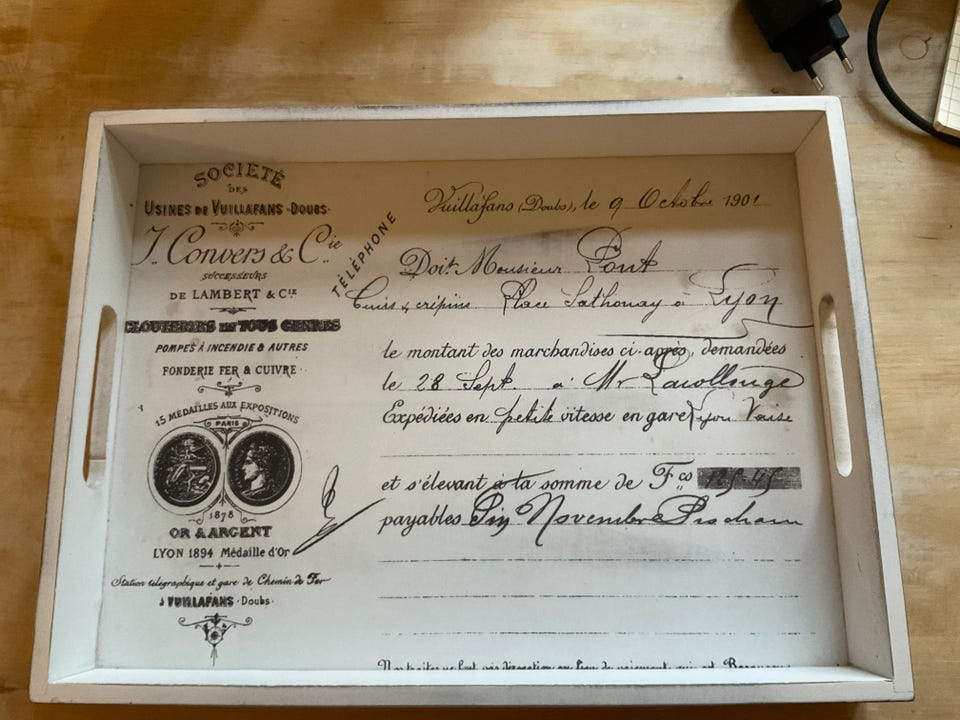 SOCIETÉ
DES
USINES DE VUILLAFANS - DOUBS -
J. Convers & Cie
SUCCESSEURS
DE LAMBERT & CIE
TÉLÉPHONE
CLOUTERIES EN TOUS GENRES
POMPES À INCENDIE & AUTRES
FONDERIE FER & CUIVRE
15 MÉDAILLES AUX EXPOSITIONS
PARIS
1878
OR & ARGENT
LYON 1894 Médaille d'Or
Station télégraphique et gare de Chemin de Fer
à VUILLAFANS - Doubs -
Vuillafans (Doubs), le 9 Octobre 1901
Doit Monsieur Pont
Cuirs & crépins Place Sathonay à Lyon
le montant des marchandises ci-après, demandées
le 28 Sept. a Mr
Expédiées en petite vitesse en gare Lyon Vaise
et s'élevant à la somme de Fcs 125-45
payables Fin Novembre Prochain
Nos traites ne font pas dérogation au lieu de paiement qui est